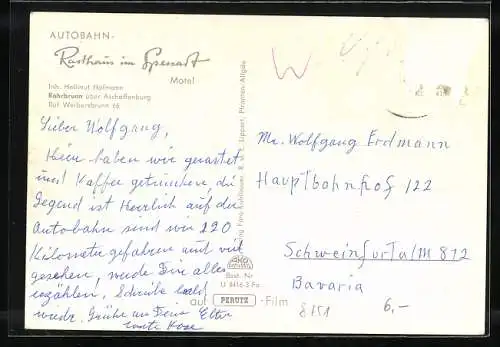 AUTOBAHN-
Rasthaus im Spessart
Motel
Inh. Hellmut Hofmann
Rohrbrunn über Aschaffenburg
Ruf Weibersbrunn 66
Lieber Wolfgang,
Hier haben wir gerastet
und Kaffee getrunken, die
Gegend ist Herrlich auf der
Autobahn sind wir 220
Kilometer gefahren und viel
gesehen, werde Dir alles
erzählen! Schreibe bald
wieder. Grüße an Deine Eltern
Lippert, Pfronten-Allgäu
Best. Nr.
U 8416-3 Fo
auf PERUTZ-Film
W
Mr. Wolfgang Erdmann
Hauptbahnhof 122
Schweinfurt a/M 872
Bavaria
8151
6,-